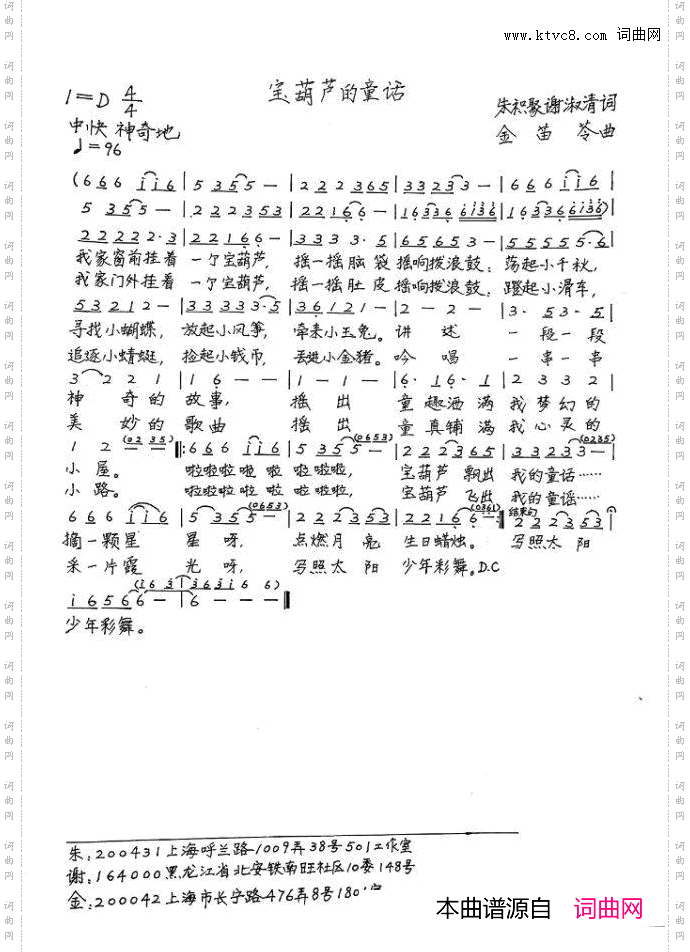 www.ktvc8.com 词曲网
宝葫芦的童话
1=D 4/4
朱积聚谢淑清词
中快 神奇地
金笛苓曲
♩=96
(6 6 6 i i 6 | 5 3 5 5 — | 2 2 2 3 6 5 | 3 3 2 3 3 — | 6 6 6 i i 6 |
5 3 5 5 — | 2 2 2 3 5 3 | 2 2 1 6 6 — | 1 6 3 3 6 6 i 3 6 | 1 6 3 3 6 6 i 3 6) |
2 2 2 2 2 2·3 | 2 2 1 6 6 — | 3 3 3 3·5 | 6 5 6 5 3 — | 5 5 5 5 5·6 |
我家窗前挂着 一个宝葫芦, 摇一摇脑袋 摇响拨浪鼓; 荡起小千秋,
我家门外挂着 一个宝葫芦, 摇一摇肚皮 摇响拨浪鼓; 蹬起小滑车,
5 3 2 1 2 — | 3 3 3 3 3·5 | 3 6 1 2 1 — | 2 — 2 — | 3· 5 3· 5 |
寻找小蝴蝶, 放起小风筝, 牵来小玉兔。 讲 述 一段一段
追逐小蜻蜓, 捡起小钱币, 丢进小金猪。 吟 唱 一串一串
3 2 2 1 | 1 6 — — | 1 — 1 — | 6· 1 6· 1 | 2 3 3 2 |
神 奇的 故事, 摇 出 童趣洒满 我梦幻的
美 妙的 歌曲 摇 出 童真铺满 我心灵的
1 2 — (0 2 3 5) ‖: 6 6 6 i i 6 | 5 3 5 5 — (0 6 5 3) | 2 2 2 3 6 5 | 3 3 2 3 3 — (0 2 3 5) |
小屋。 啦啦啦 啦 啦 啦啦啦, 宝葫芦 飘出 我的童话……
小路。 啦啦啦 啦 啦 啦啦啦, 宝葫芦 飞出 我的童谣……
6 6 6 i i 6 | 5 3 5 5 — (0 6 5 3) | 2 2 2 3 5 3 | 2 2 1 6 6 — (0 3 6 1) :‖ 结束句 2 2 2 3 5 3 |
摘一颗星 星 呀, 点燃月亮 生日蜡烛。 写照太阳
采一片霞 光 呀, 写照太阳 少年彩舞。D.C
i 6 5 6 6 — — (i 6 3 | 3 6 3 i 6 6) 6 — — — ‖
少年彩舞。
朱:200431上海呼兰路1009弄38号501工作室
谢:164000黑龙江省北安铁南旺社区10委148号
金:200042上海市长宁路476弄8号180
本曲谱源自 词曲网
词曲网